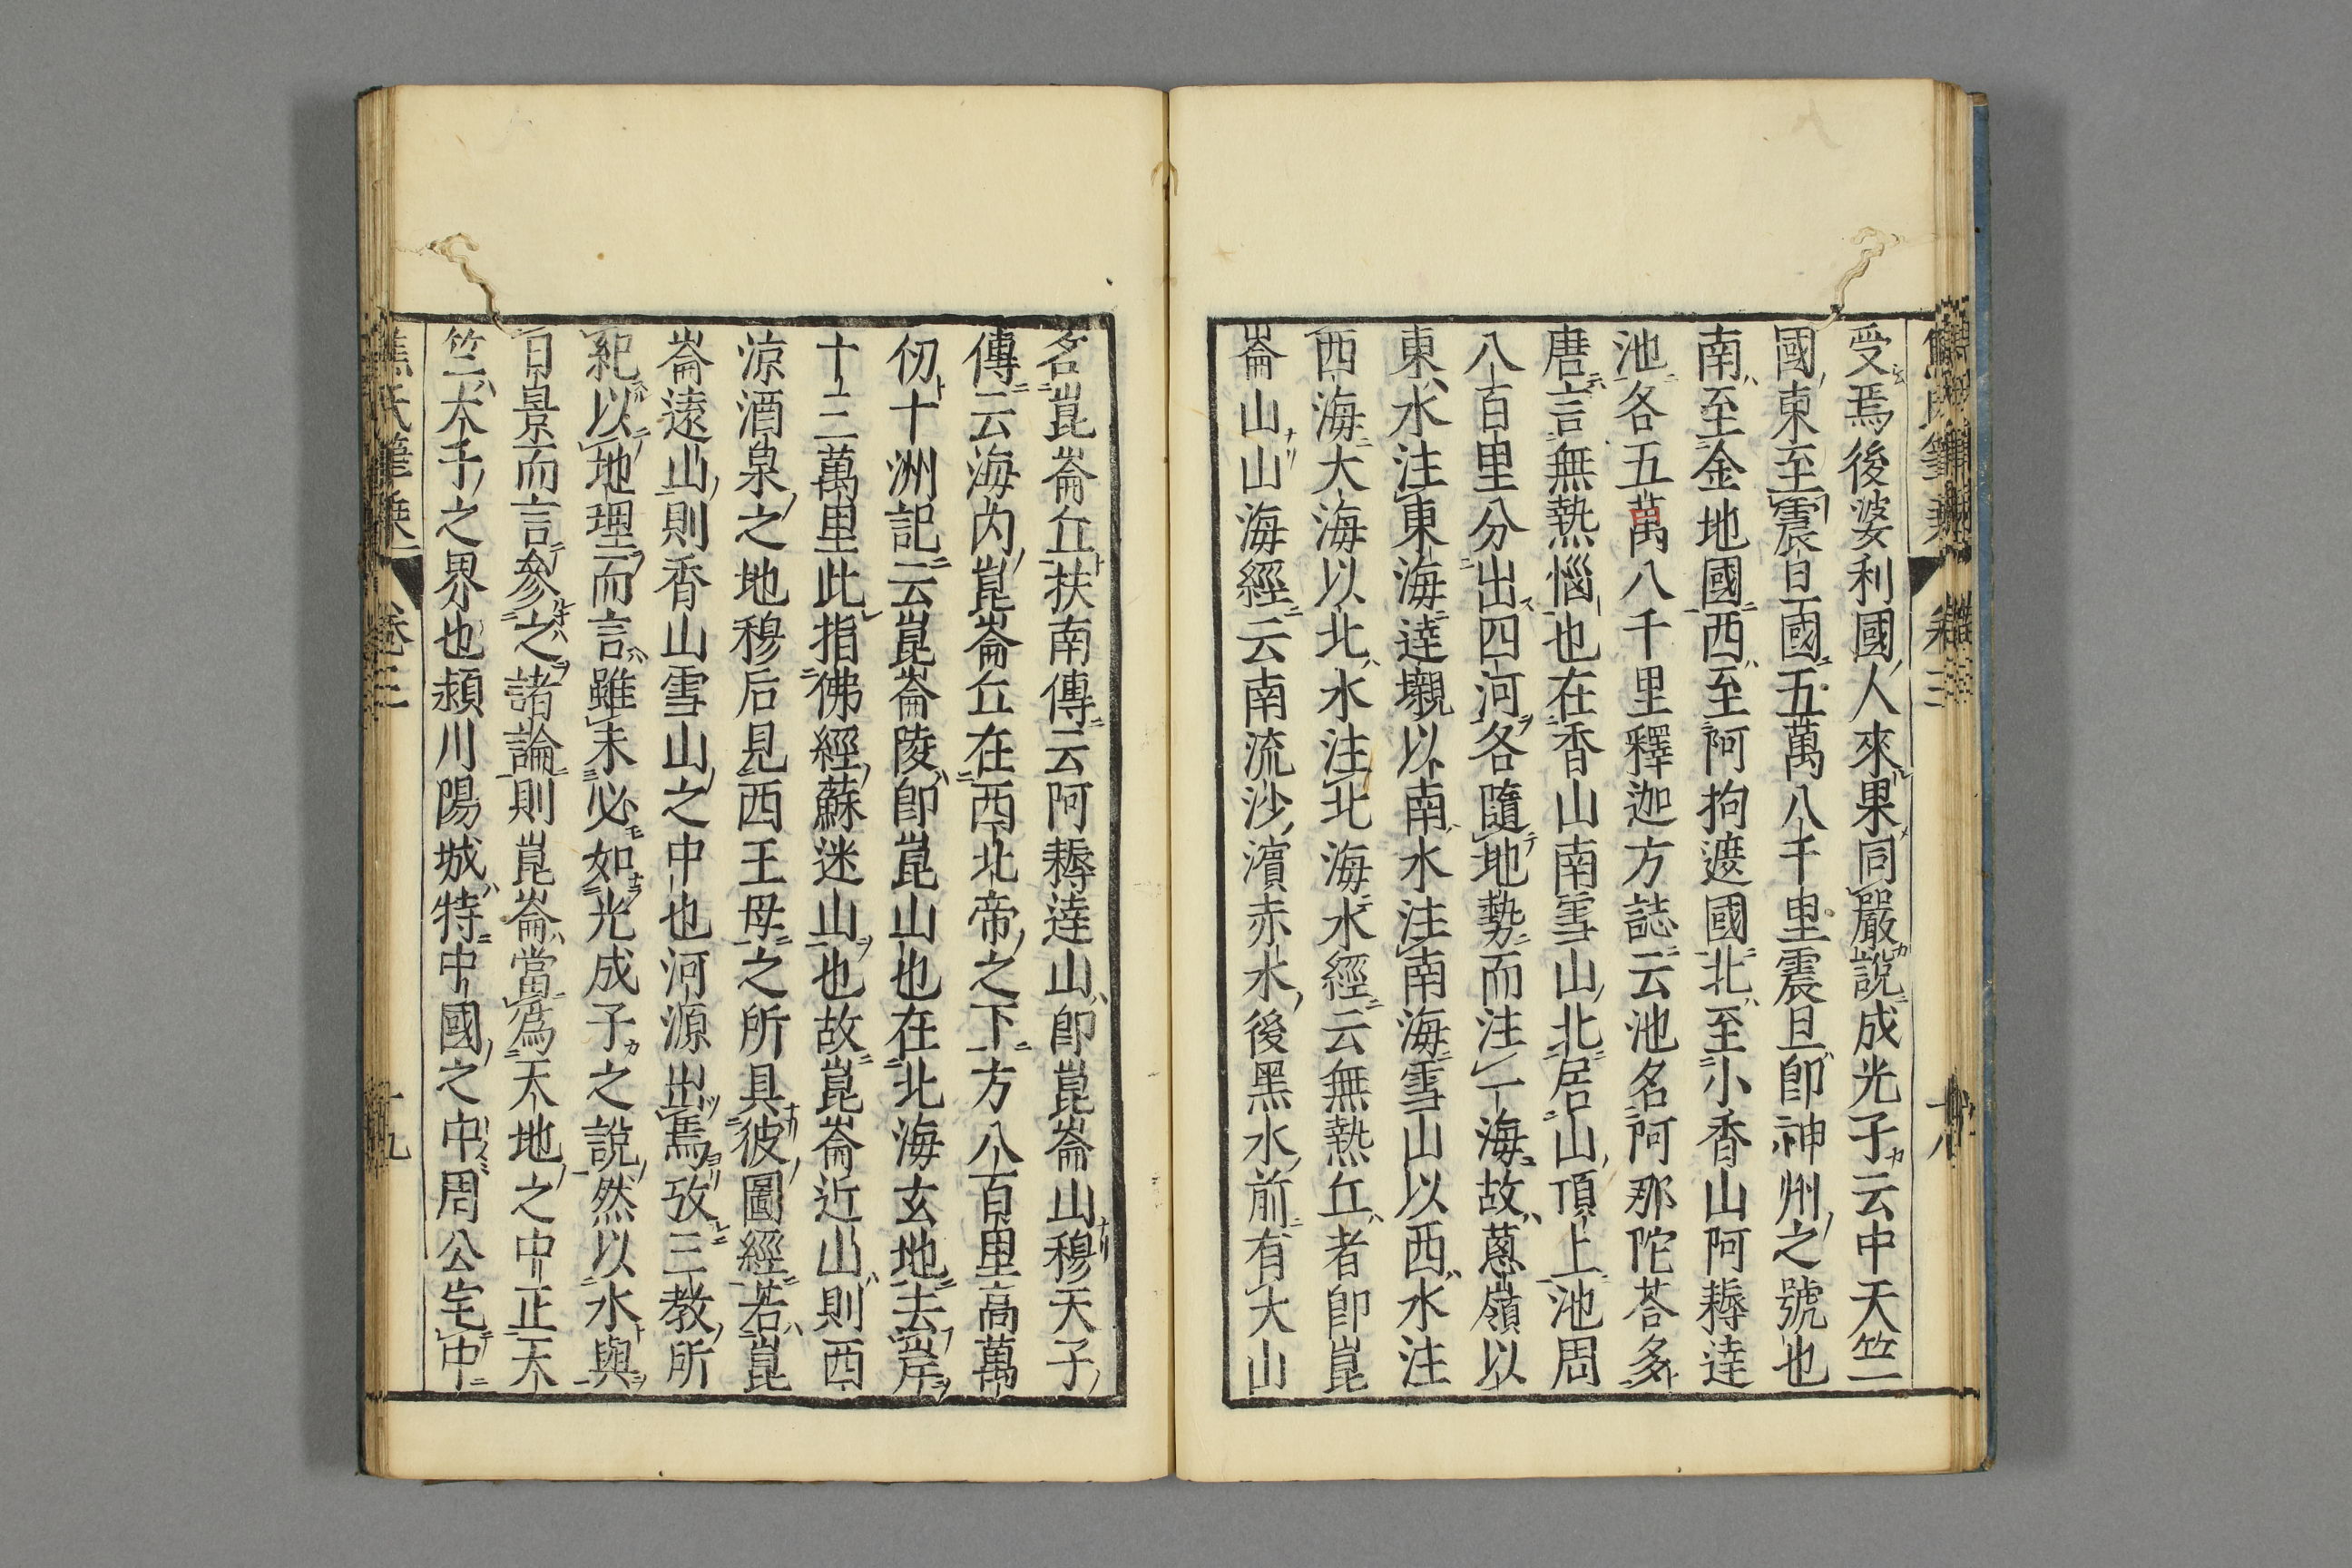 受焉後婆利國人來果同嚴說成光子云中天竺
國東至震旦國五萬八千里震旦卽神州之號也
南至金地國西至阿拘遮國北至小香山阿耨達
池各五萬八千里釋迦方誌云池名阿那陀荅多
唐言無熱惱也在香山南雪山北居山頂上池周
八百里分出四河各隨地勢而注一海故蔥嶺以
東水注東海達櫬以南水注南海雪山以西水注
西海大海以北水注北海水經云無熱丘者卽崑
崙山山海經云南流沙濱赤水後黑水前有大山
名崑崙丘扶南傳云阿耨達山卽崑崙山穆天子
傳云海內崑崙丘在西北帝之下方八百里高萬
仞十洲記云崑崙陵卽崑山也在北海玄地去岸
十三萬里此指佛經蘇迷山也故崑崙近山則西
涼酒泉之地穆后見西王母之所具彼圖經若崑
崙遠山則香山雪山之中也河源出焉攷三教所
紀以地理而言雖未必如光成子之說然以水與
日景而言參之諸論則崑崙當爲天地之中正天
竺太子之界也潁川陽城特中國之中周公宅中
卷三
十九